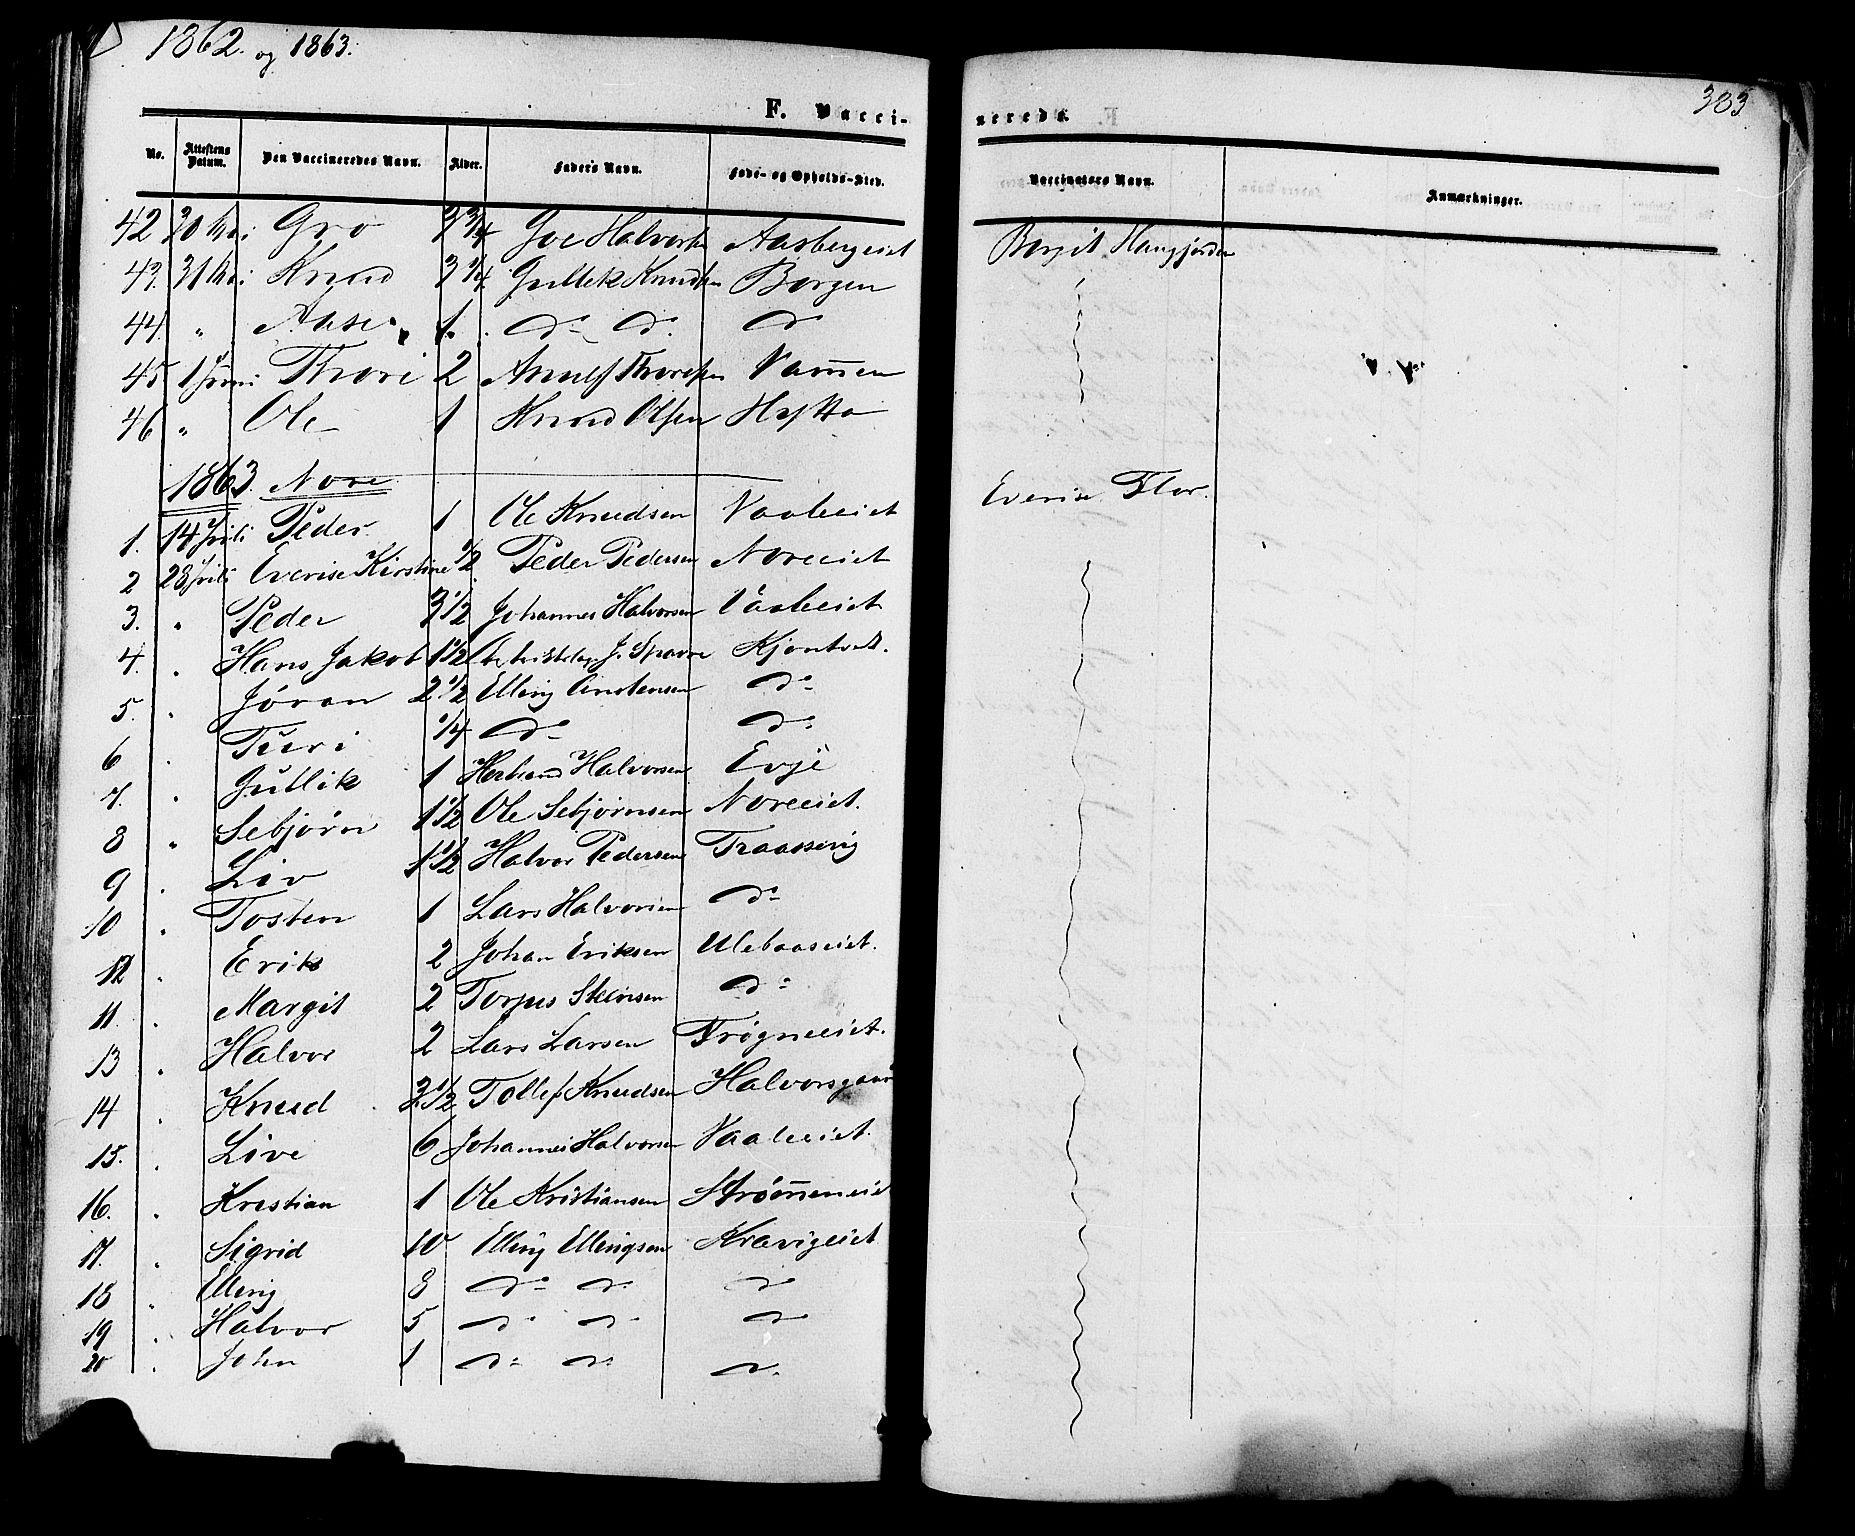 1862. og 1863.
383
F. Vacci-
nerede.
No. Attestens Datum. Den Vaccineredes Navn. Alder. Faders Navn. Føde- og Opholds-Sted. Vaccinators Navn. Anmærkninger.
42 30 Mai Gro 3 3/4 Joe Halvorsen Aasbergeiet Birgit
43. 31 Mai Knud 3 1/4. Gullek Knudsen Borgen
44. " Aase 1. do do. do
45 1 Juni Thore 2 Thoresen
46 " Ole 1 Knud Olsen Hafto
1863. Nore
1. 14 Juli Peder 1 Ole Knudsen Vaaleeiet Everise Flor.
2 28 Juli Everise Kirstine 1/2 Peder Pedersen Noreeiet
3. " Peder 3 1/2 Johannes Halvorsen Vaaleeiet
4. " Hans Jakob 1 1/2 J. Sparre Kjøntvet.
5. " Jøran 2 1/2 Elling Anstensen do
6 " Turi 1/4 do do
7. " Gullik 1 Herbrand Halvorsen Evje
8 " Sebjørn 1 1/2 Ole Sebjørnsen Noreeiet.
9 " Liv 1 1/2 Halvor Pedersen Traasserig
10 " Tosten 1 Lars Halvorsen do
12 " Erik 2 Johan Eriksen Ulebaaseiet.
11. " Margit 2 Torjus Steensen do
13 " Halvor 2 Lars Larsen Trøgneeiet.
14 " Knud 2 1/2 Tollef Knudsen Halvorsgaard
15. " Live 6 Johannes Halvorsen Vaaleeiet.
16. " Kristian 1 Ole Kristiansen Strømeneiet
17. " Sigrid 10 Elling Ellingsen Kravigeiet
18 " Elling 8 do do do
19 " Halvor 5 do do do
20 " John 1 do do do